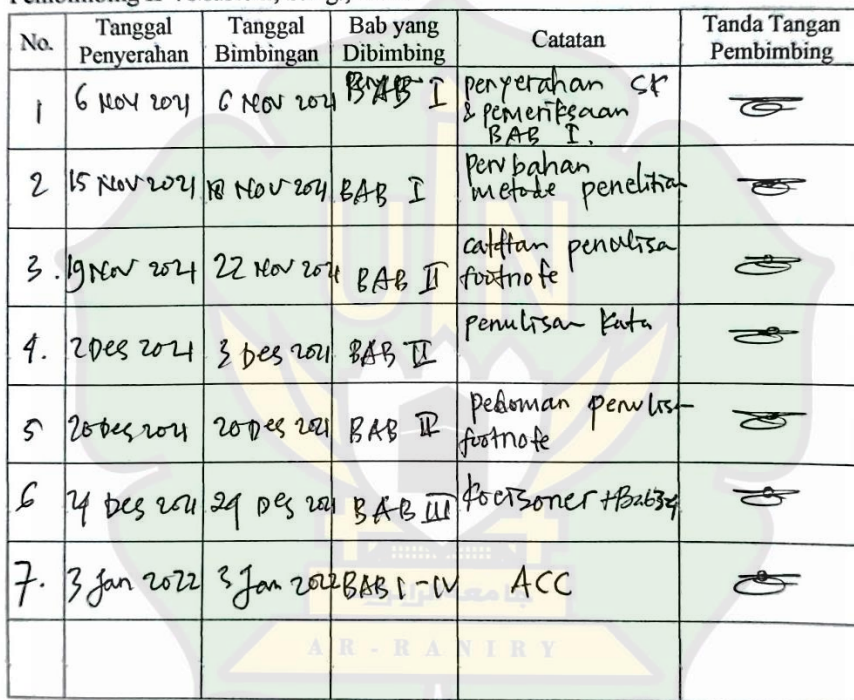 No. Tanggal Penyerahan Tanggal Bimbingan Bab yang Dibimbing Catatan Tanda Tangan Pembimbing
1 6 Nov 2021 6 Nov 2021 BAB I penyerahan SK
& pemeriksaan
BAB I.
2 15 Nov 2021 18 Nov 2021 BAB I perubahan
metode penelitian
3. 19 Nov 2021 22 Nov 2021 BAB II catatan penulisa
footnote
4. 2 Des 2021 3 Des 2021 BAB II penulisan kata
5 20 Des 2021 20 Des 2021 BAB II pedoman penulisan
footnote
6 Des 2021 Des 2021 BAB III
7. 3 Jan 2022 3 Jan 2022 BAB I-IV ACC
UIN
جامعة الرانري
AR-RANIRY